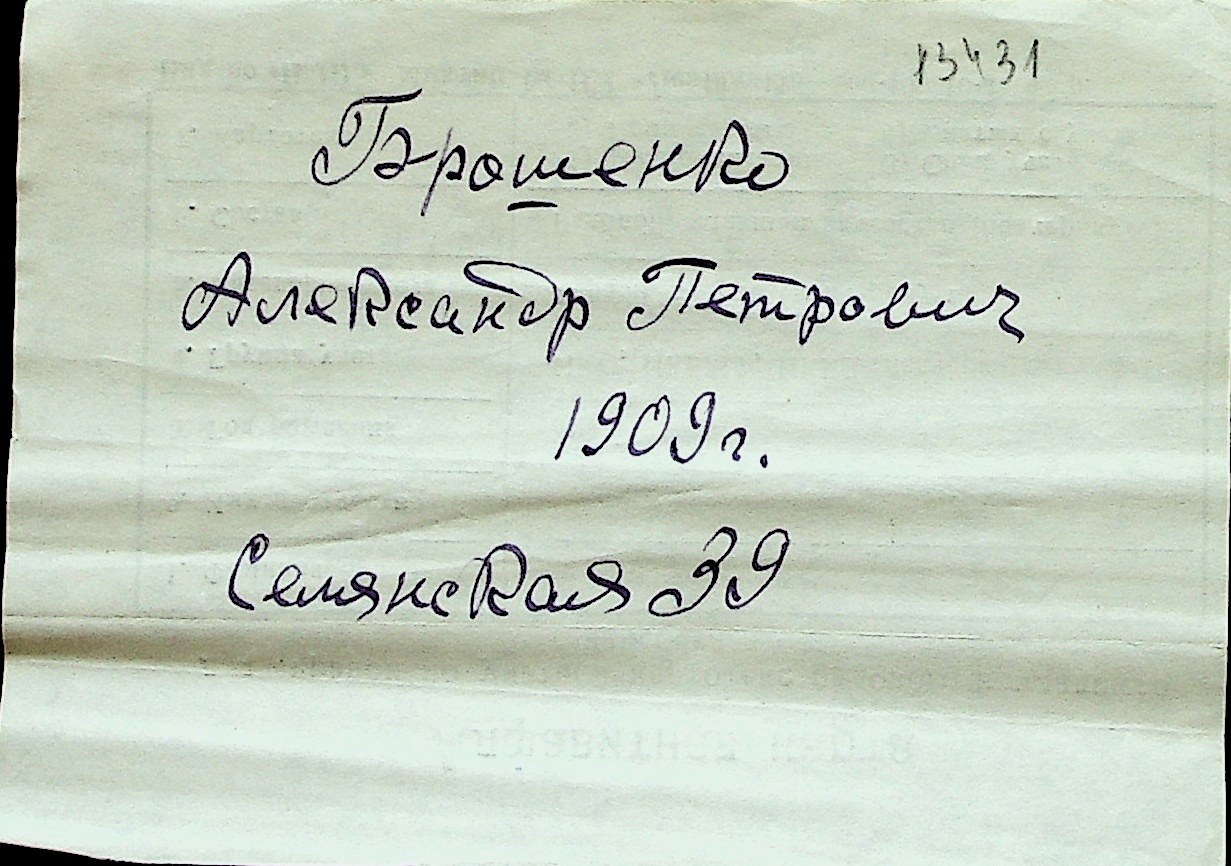 13431
Ярошенко
Александр Петрович
1909г.
Семянская 39